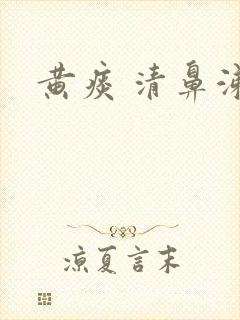 黄痰 清鼻涕
凉夏言末